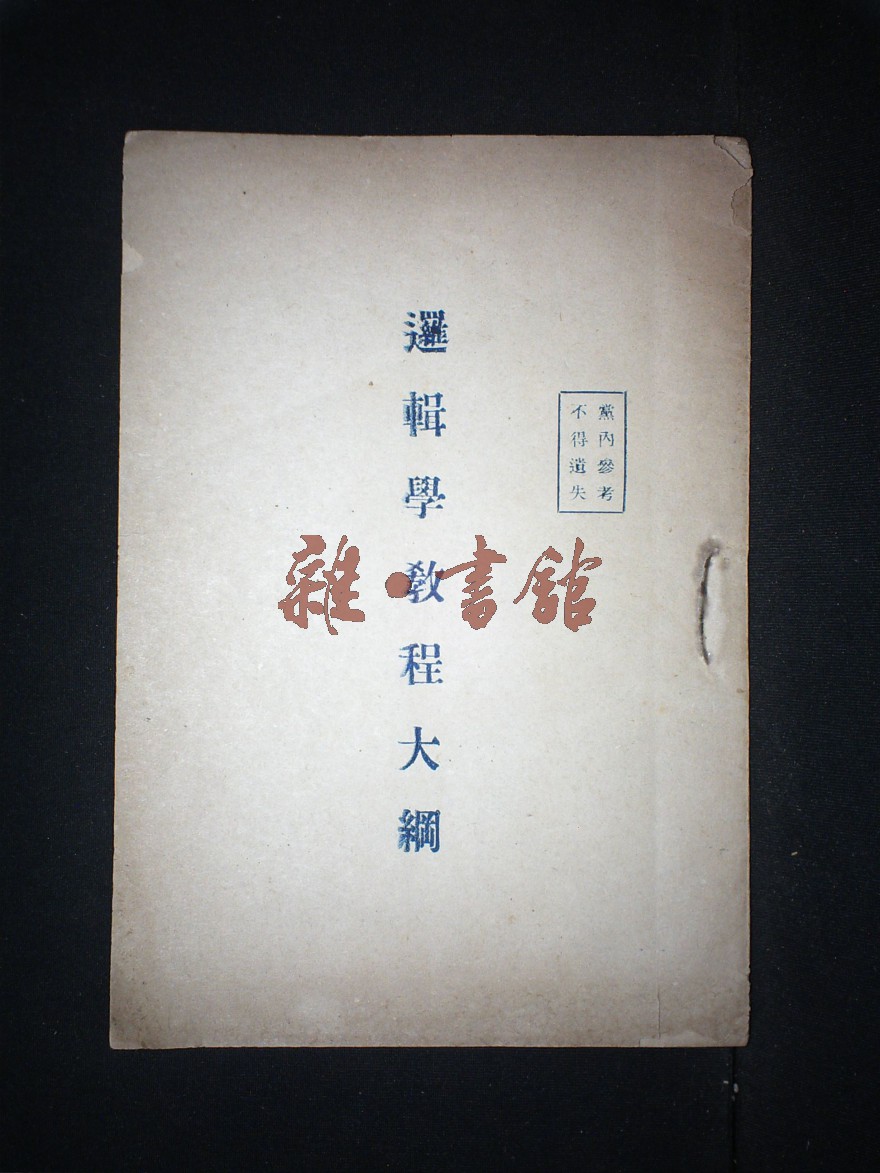 黨內參考
不得遺失
邏輯學教程大綱
雜·書館